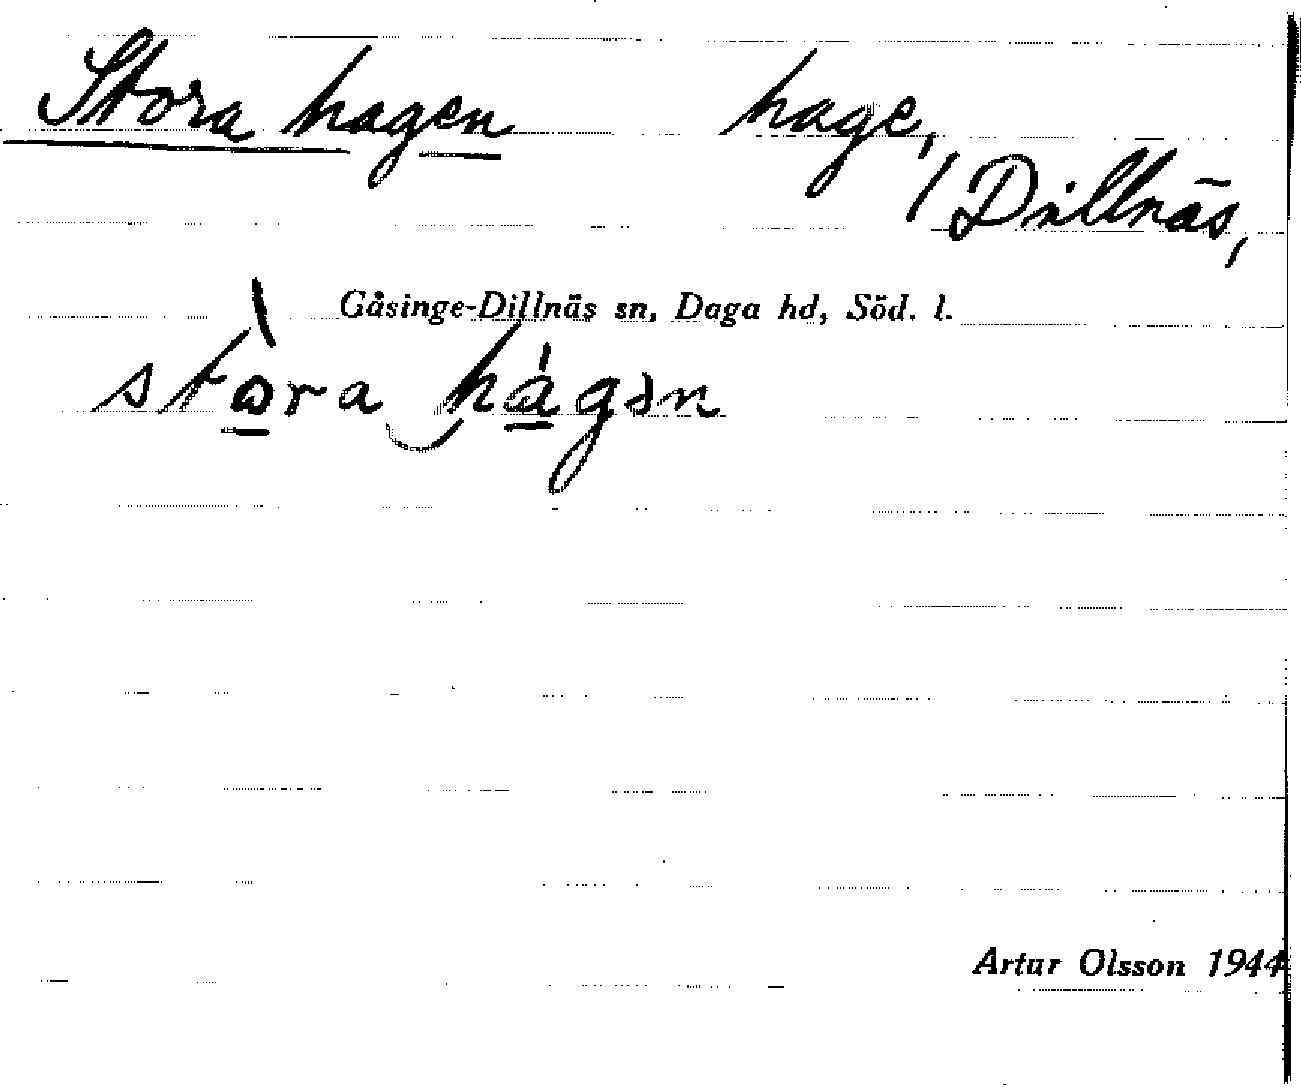 Stora hagen hage,
/ Dillnäs,
Gåsinge-Dillnäs sn, Daga hd, Söd. l.
stò̱ra‿há̱gən
Artur Olsson 1944